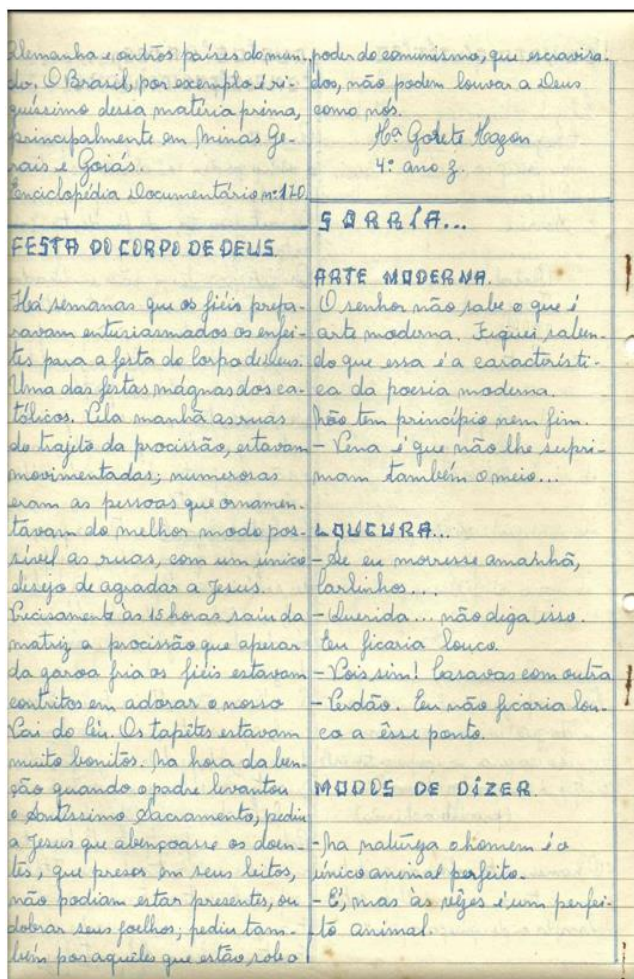 Alemanha e outros países do mun-
do. O Brasil, por exemplo é ri-
quíssimo dessa matéria prima,
principalmente em Minas Ge-
rais e Goiás.
Enciclopédia Documentário nº 170
FESTA DO CORPO DE DEUS.
Há semanas que os fiéis prepa-
ravam enturiasmados os enfei-
tes para a festa do Corpo de Deus.
Uma das festas mágnas dos ca-
tólicos. Pela manhã as ruas
do trajeto da procissão, estavam
movimentadas; numerosas
eram as pessoas que ornamen-
tavam do melhor modo pos-
sível as ruas, com um único
desejo de agradar a Jesus.
Precisamente às 15 horas saiu da
matriz a procissão que apesar
da garoa fria os fiéis estavam
contritos em adorar o nosso
Pai do Céu. Os tapêtes estavam
muito bonitos. Na hora da ben-
ção quando o padre levantou
o Santíssimo Sacramento, pediu
a Jesus que abençoasse os doen-
tes, que presos em seus leitos,
não podiam estar presentes, ou
dobrar seus joelhos; pediu tam-
bém por aqueles que estão sob o
poder do comunismo, que escravisa-
dos, não podem louvar a Deus
como nós.
Mª Gorete Mazon
4º ano z.
SORRÍA...
ARTE MODERNA.
O senhor não sabe o que é
arte moderna. Fiquei saben-
do que essa é a característi-
ca da poesia moderna.
Não tem princípio nem fim.
- Pena é que não lhe supri-
mam também o meio...
LOUCURA...
- Se eu morresse amanhã,
Carlinhos...
- Querida... não diga isso.
Eu ficaria louco.
- Pois sim! Casavas com outra
- Perdão. Eu não ficaria lou-
co a êsse ponto.
MODOS DE DÍZER.
- Na naturêza o homem é o
único animal perfeito.
- É, mas às vêzes é um perfei-
to animal.